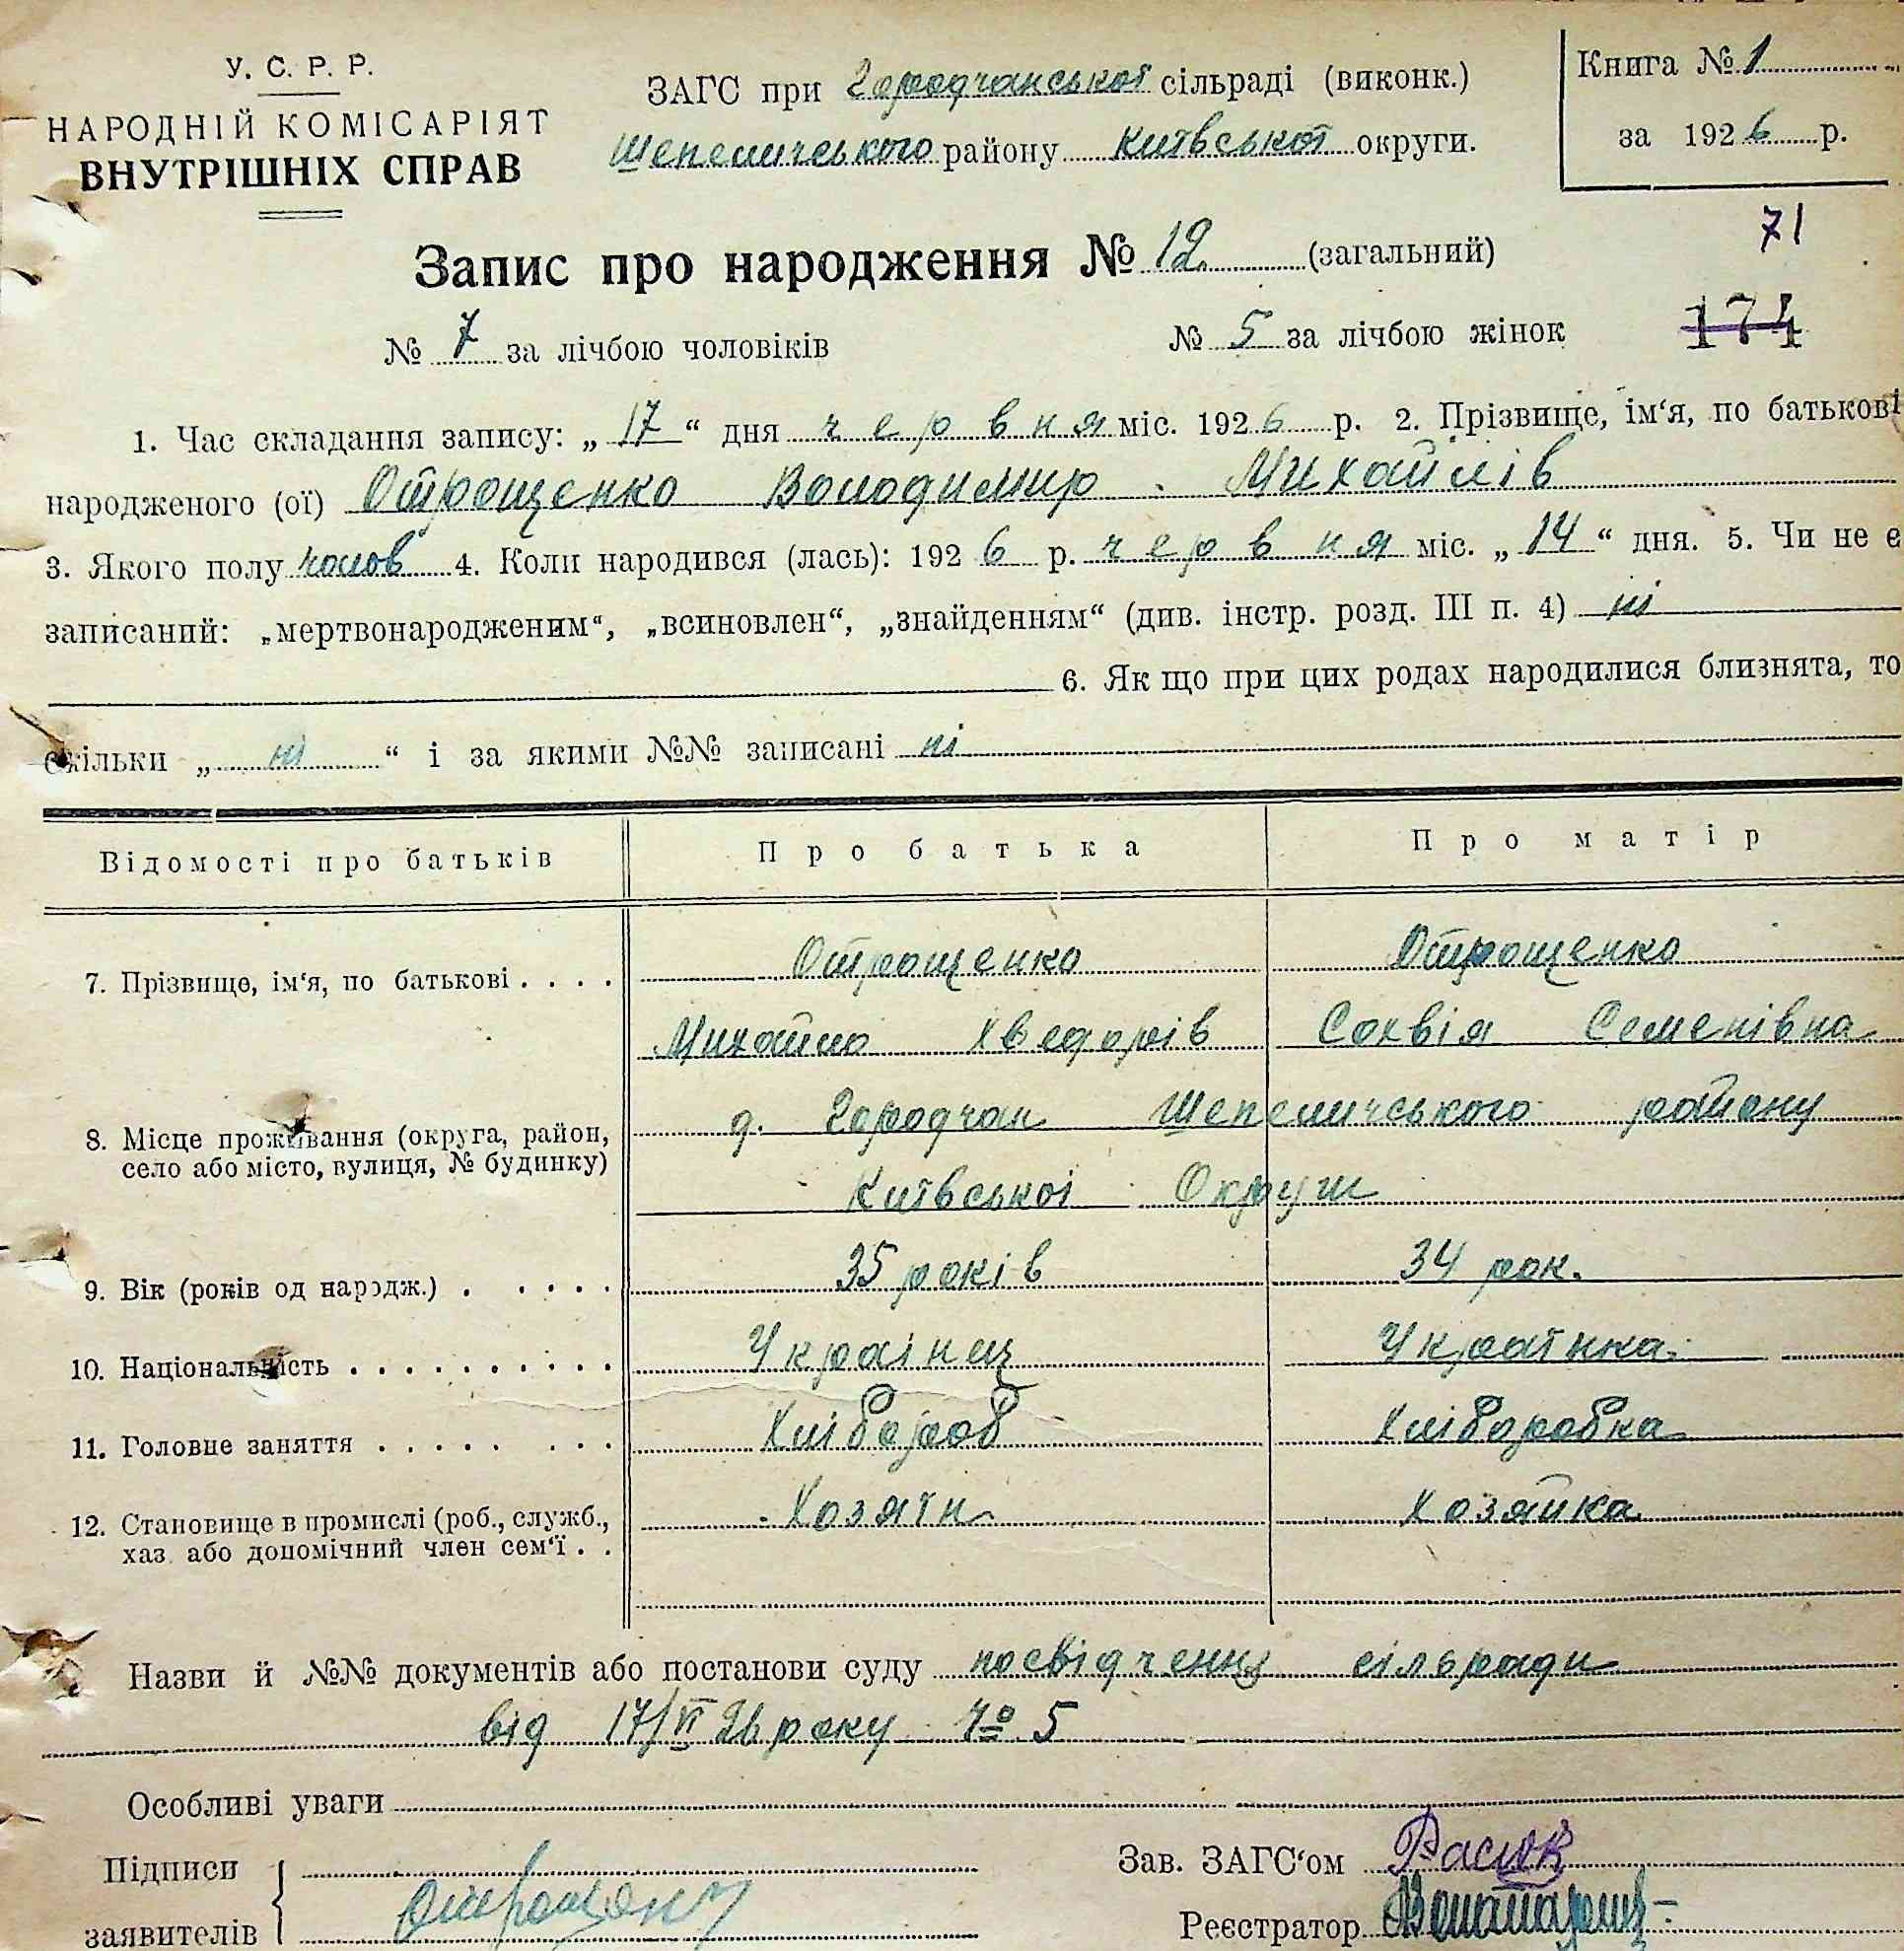 У. С. Р. Р.
НАРОДНІЙ КОМІСАРІЯТ
ВНУТРІШНІХ СПРАВ
ЗАГС при Городчанської сільраді (виконк.)
Шепелицького району Київської округи.
Книга № 1
за 1926 р.
71
Запис про народження № 12 (загальний)
174
№ 7 за лічбою чоловіків № 5 за лічбою жінок
1. Час складання запису: „17“ дня червня міс. 1926 р. 2. Прізвище, ім‘я, по батькові
народженого (ої) Отрощенко Володимир Михайлів
3. Якого полу чолов 4. Коли народився (лась): 1926 р. червня міс. „14“ дня. 5. Чи не є
записаний: „мертвонародженим“, „всиновлен“, „знайденням“ (див. інстр. розд. III п. 4) ні
6. Як що при цих родах народилися близнята, то
скільки „ ні “ і за якими №№ записані ні
Відомості про батьків Про батька Про матір
7. Прізвище, ім‘я, по батькові . . . . Отрощенко Отрощенко
Михайло Хведорів Сохвія Семенівна
8. Місце проживання (округа, район, д. Городчан Шепелицького району
село або місто, вулиця, № будинку)
Київської Округи
9. Вік (років од народж.) . . . . . 35 років 34 рок.
10. Національність . . . . . . . . . . Українец Українка
11. Головне заняття . . . . . . . . Хлібороб Хліборобка
12. Становище в промислі (роб., служб., Хозяїн Хозяйка
хаз. або допомічний член сем‘ї . .
Назви й №№ документів або постанови суду посвідчення сільради
від 17/VI 26 року № 5
Особливі уваги
Підписи
заявителів
Зав. ЗАГС‘ом
Реєстратор